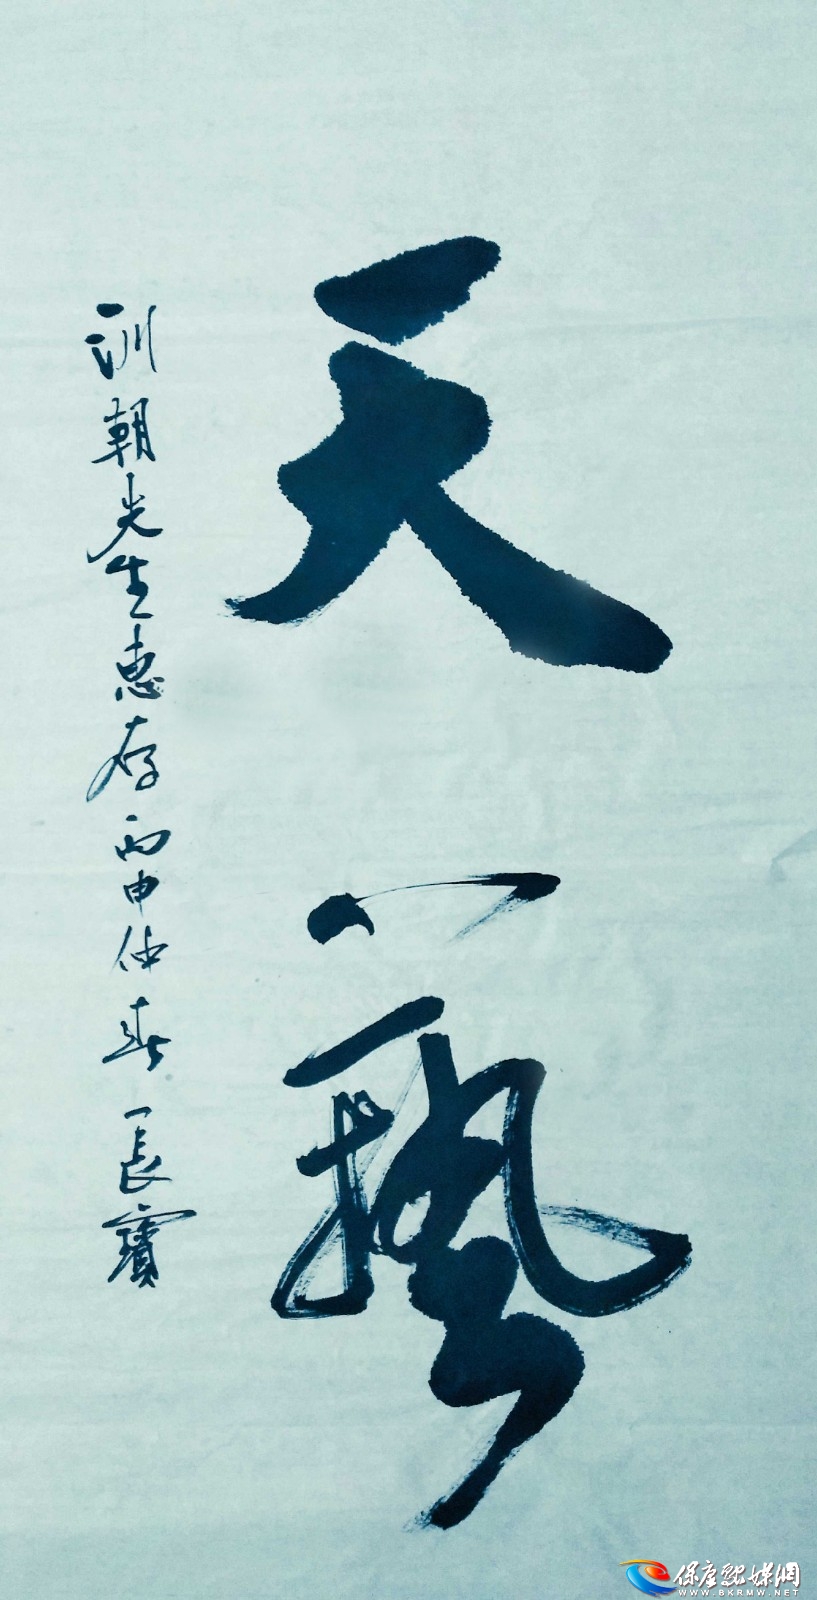 天藝
訓朝先生惠存丙申仲春長寶
保座融媒網
WWW.BKRMW.NET